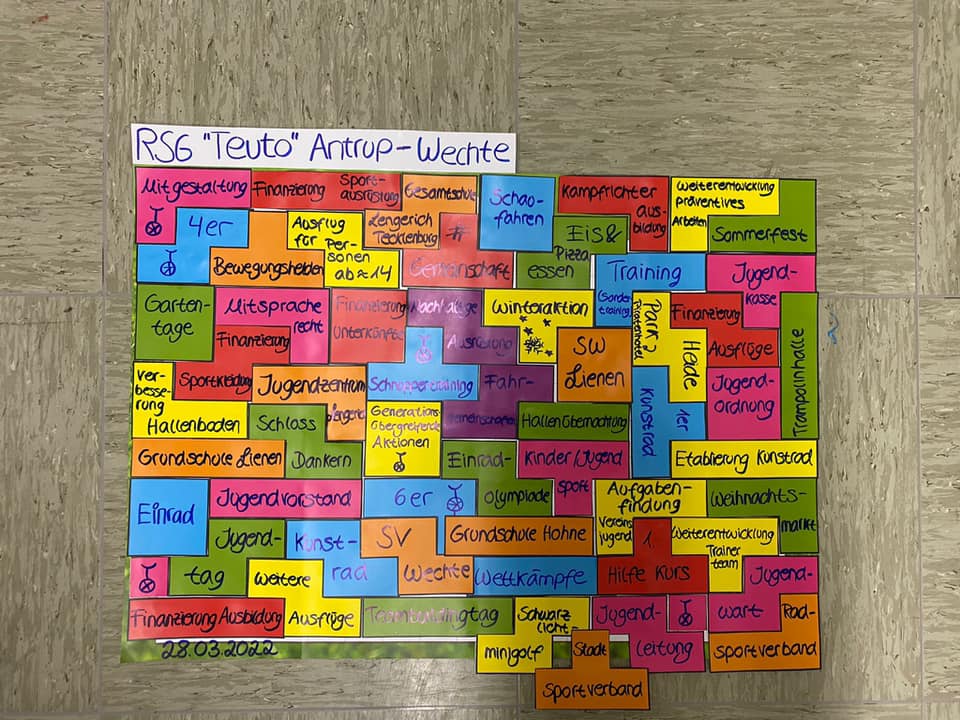 RSG "Teuto" Antrup-Wechte
Mitgestaltung
Finanzierung Sport-
ausrüstung
Gesamtschule
Lengerich
Tecklenburg
Schao-
fahren
Kampfrichter
aus-
bildung
Weiterentwicklung
präventives
Arbeiten
Sommerfest
4er
Ausflug
für Per-
sonen
ab ≈ 14
Eis &
Pizza
essen
Bewegungshelden
Gemeinschaft
Training
Sonder
training
Jugend-
kasse
Garten-
tage
Mitsprache
recht
Finanzierung
Unterkünfte
Ausrüstung
Winteraktion
Park?
Piratenhotel
Heide
Finanzierung
Ausflüge
Trampolinhalle
Finanzierung
Sportkleidung
SW
Lienen
Ver-
besse-
rung
Hallenboden
Jugendzentrum
Lengerich
Schnuppertraining
Fahr-
gemeinschaften
Kunstrad
1er
Jugend-
ordnung
Schloss
Dankern
Generations-
übergreifende
Aktionen
Hallenübernachtung
Grundschule Lienen
Einrad-
Olympiade
Kinder/Jugend
sport
Etablierung Kunstrad
Einrad
Jugendvorstand
6er
Aufgaben-
findung
Vereins
jugend
Weihnachts-
markt
Jugend-
tag
Kunst-
rad
SV
Wechte
Grundschule Hohne
1.
Hilfe Kurs
Weiterentwicklung
Trainer
team
Weitere
Ausflüge
Wettkämpfe
Jugend-
wart
Finanzierung Ausbildung
Teambuildingtag
Schwarz
licht-
minigolf
Jugend-
leitung
Rad-
sportverband
28.03.2022
Stadt
Sportverband